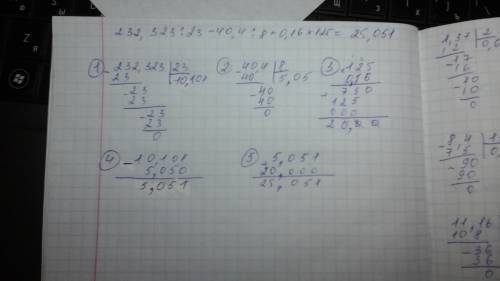 232,323:23-40,4:8+0,16×125= 25,051
① 232,323 | 23
23 10,101
- 23
23
- 23
23
0
② - 40,4 | 8
40 5,05
- 40
40
0
③ × 125
0,16
+ 750
125
000
20,00
④ - 10,101
5,050
5,051
⑤ + 5,051
20,000
25,051
1,37 | 2
1 2
- 17
16
- 10
10
0
- 84
7 5
- 90
90
0
11,16
10 8
- 36
36
0